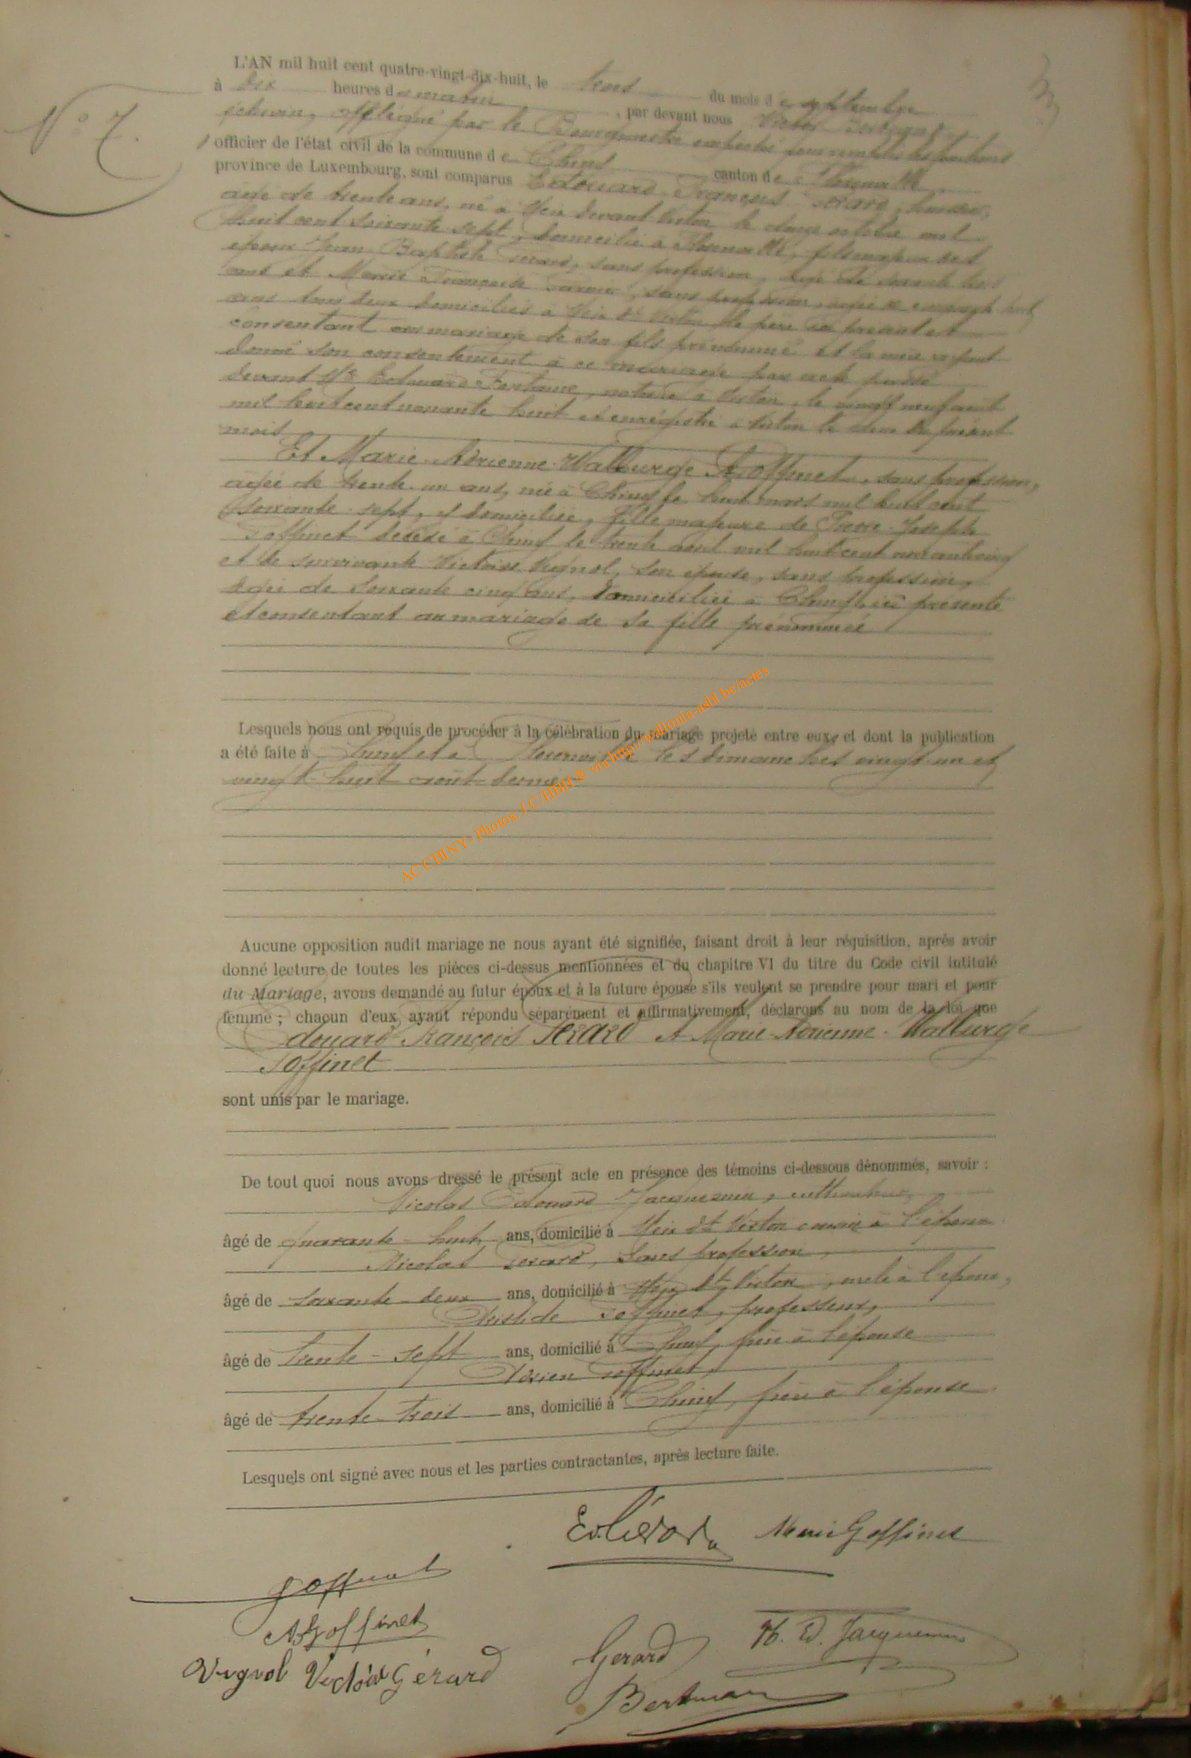 N° 7.
L'AN mil huit cent quatre-vingt-dix-huit, le trois du mois de septembre
à dix heures du matin, par devant nous Victor
échevin, délégué par le Bourgmestre empêché pour remplir les fonctions
officier de l'état civil de la commune de Chiny canton de Florenville
province de Luxembourg, sont comparus Edouard François Gérard,
âgé de trente ans, né à Meix devant Virton le douze octobre mil
huit cent soixante sept, domicilié à Florenville, fils majeur des
époux Jean Baptiste Gérard, sans profession, âgé de soixante trois
ans et Marie Françoise, sans profession, âgée de cinquante huit
ans tous deux domiciliés à Meix dt Virton le père ici présent et
consentant au mariage de son fils prénommé et la mère ayant
donné son consentement à ce mariage par acte passé
devant Me Edouard Fontaine, notaire à Virton, le vingt neuf août
mil huit cent nonante huit et enregistré à Virton le deux du présent
mois
Et Marie-Adrienne-Walburge Goffinet, sans profession,
âgée de trente un ans, née à Chiny le huit mars mil huit cent
soixante-sept, y domiciliée, fille majeure de Pierre-Joseph
Goffinet décédé à Chiny le trente août mil huit cent
et de survivante Victoire Vugnol, son épouse, sans profession,
âgée de soixante cinq ans, domiciliée à Chiny, ici présente
et consentant au mariage de sa fille prénommée
Lesquels nous ont requis de procéder à la célébration du mariage projeté entre eux, et dont la publication
a été faite à Chiny et à Florenville les dimanches vingt un et
vingt-huit août dernier
Aucune opposition audit mariage ne nous ayant été signifiée, faisant droit à leur réquisition, après avoir
donné lecture de toutes les pièces ci-dessus mentionnées et du chapitre VI du titre du Code civil intitulé
du Mariage, avons demandé au futur époux et à la future épouse s'ils veulent se prendre pour mari et pour
femme ; chacun d'eux ayant répondu séparément et affirmativement, déclarons au nom de la loi que
Edouard François Gérard et Marie-Adrienne-Walburge
Goffinet
sont unis par le mariage.
De tout quoi nous avons dressé le présent acte en présence des témoins ci-dessous dénommés, savoir :
Nicolas Edouard Jacquemin, cultivateur
âgé de quarante-huit ans, domicilié à Meix dt Virton cousin à l'époux
Nicolas Gérard, sans profession,
âgé de soixante-deux ans, domicilié à Meix dt Virton, oncle à l'époux,
Aristide Goffinet, professeur,
âgé de trente-sept ans, domicilié à Chiny, frère à l'épouse
Adrien Goffinet,
âgé de trente-trois ans, domicilié à Chiny, frère à l'épouse
Lesquels ont signé avec nous et les parties contractantes, après lecture faite.
Ed Gérard Marie Goffinet
Goffinet
A Goffinet
Vugnol Victoire Gérard
Gerard N. Ed. Jacquemin
AC CHINY - Photos J.C Hibly